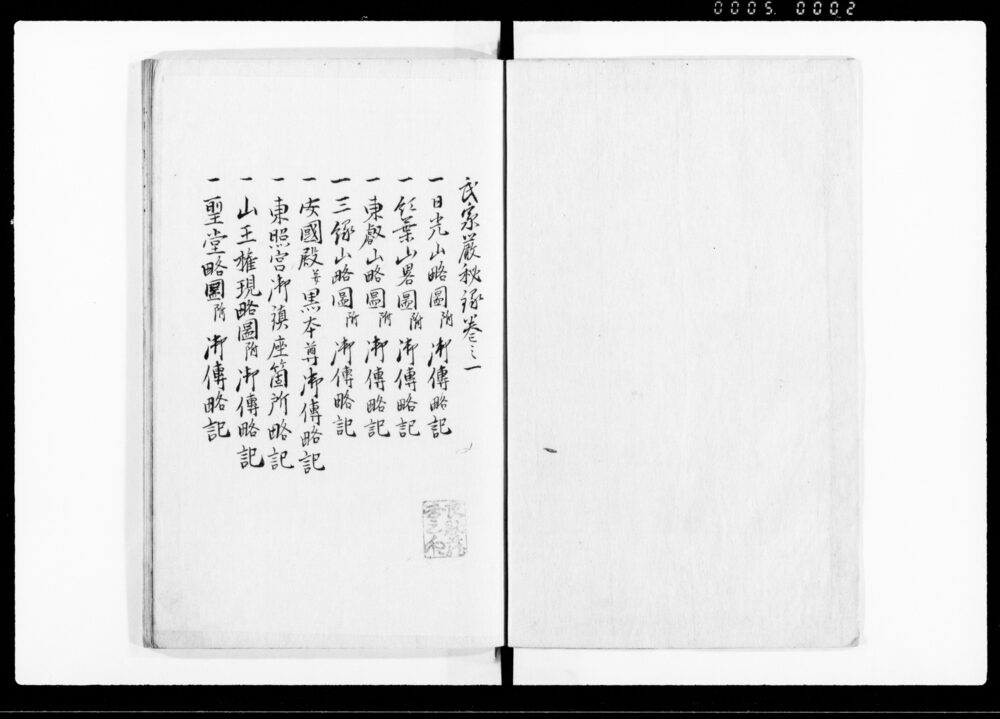 0005 0002
武家嚴秘録卷之一
一日光山略圖附御傳略記
一紅葉山畧圖附御傳略記
一東叡山略圖附御傳略記
一三縁山略圖附御傳略記
一安國殿並黒本尊御傳略記
一東照宮御鎮座箇所略記
一山王権現略圖附御傳略記
一聖堂略圖附御傳略記